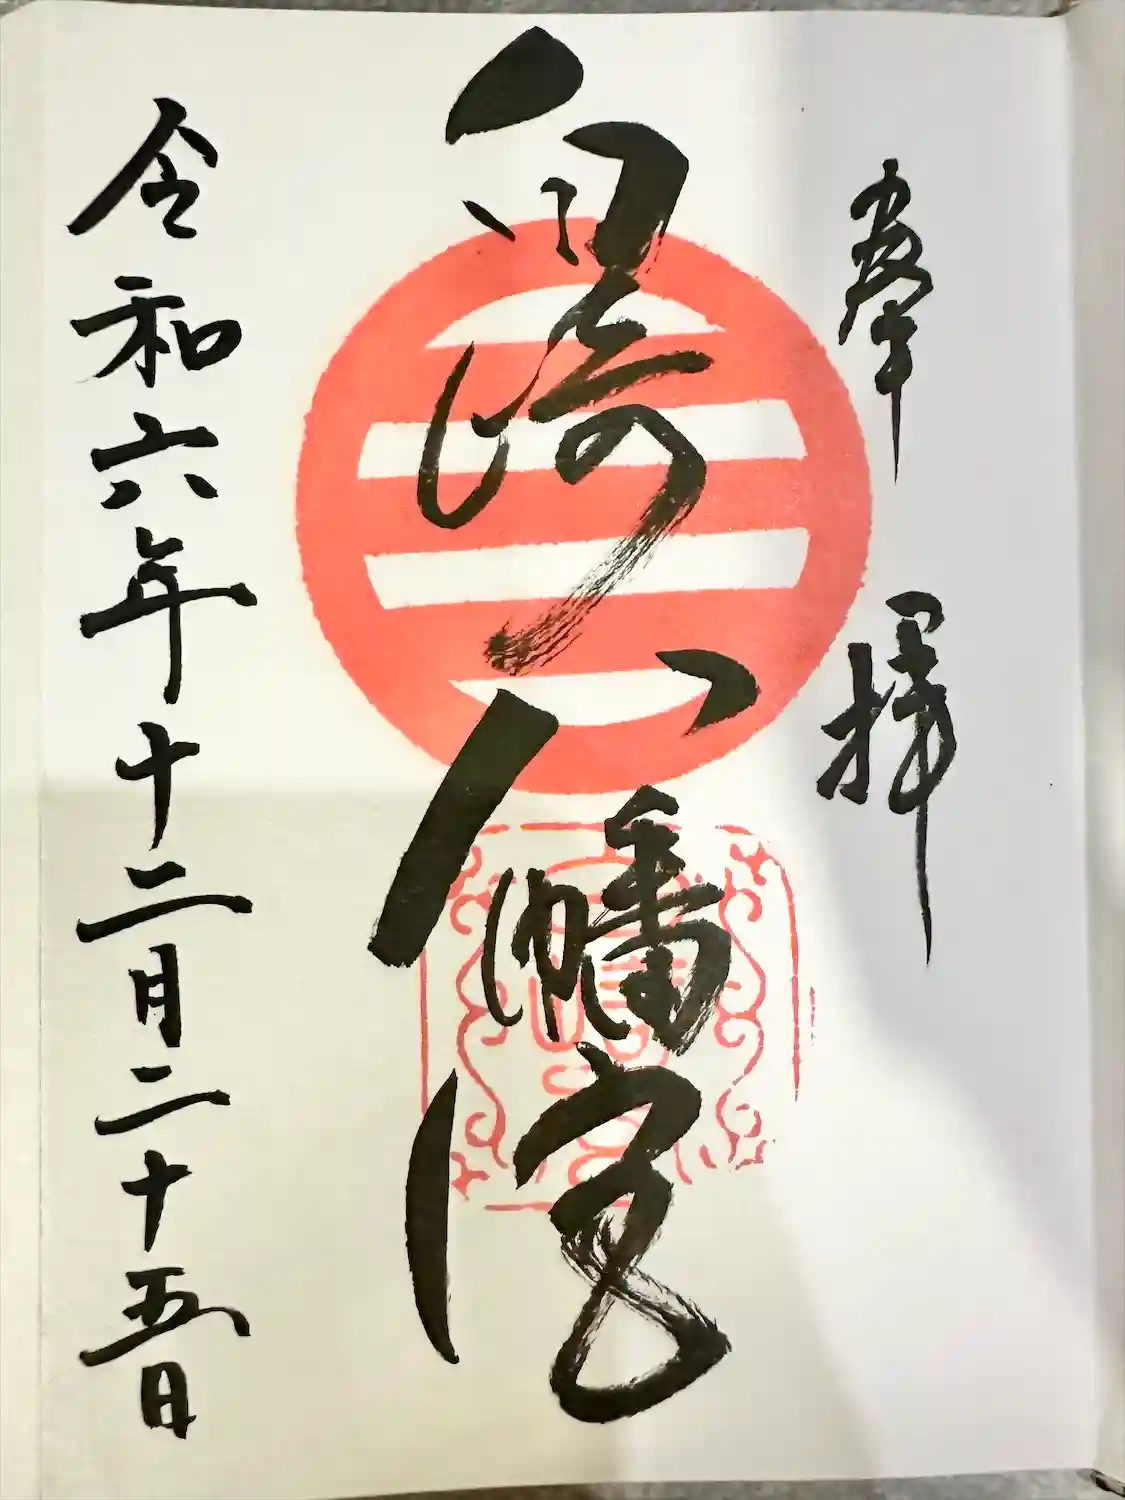 奉拝
白崎八幡宮
令和六年十二月二十五日